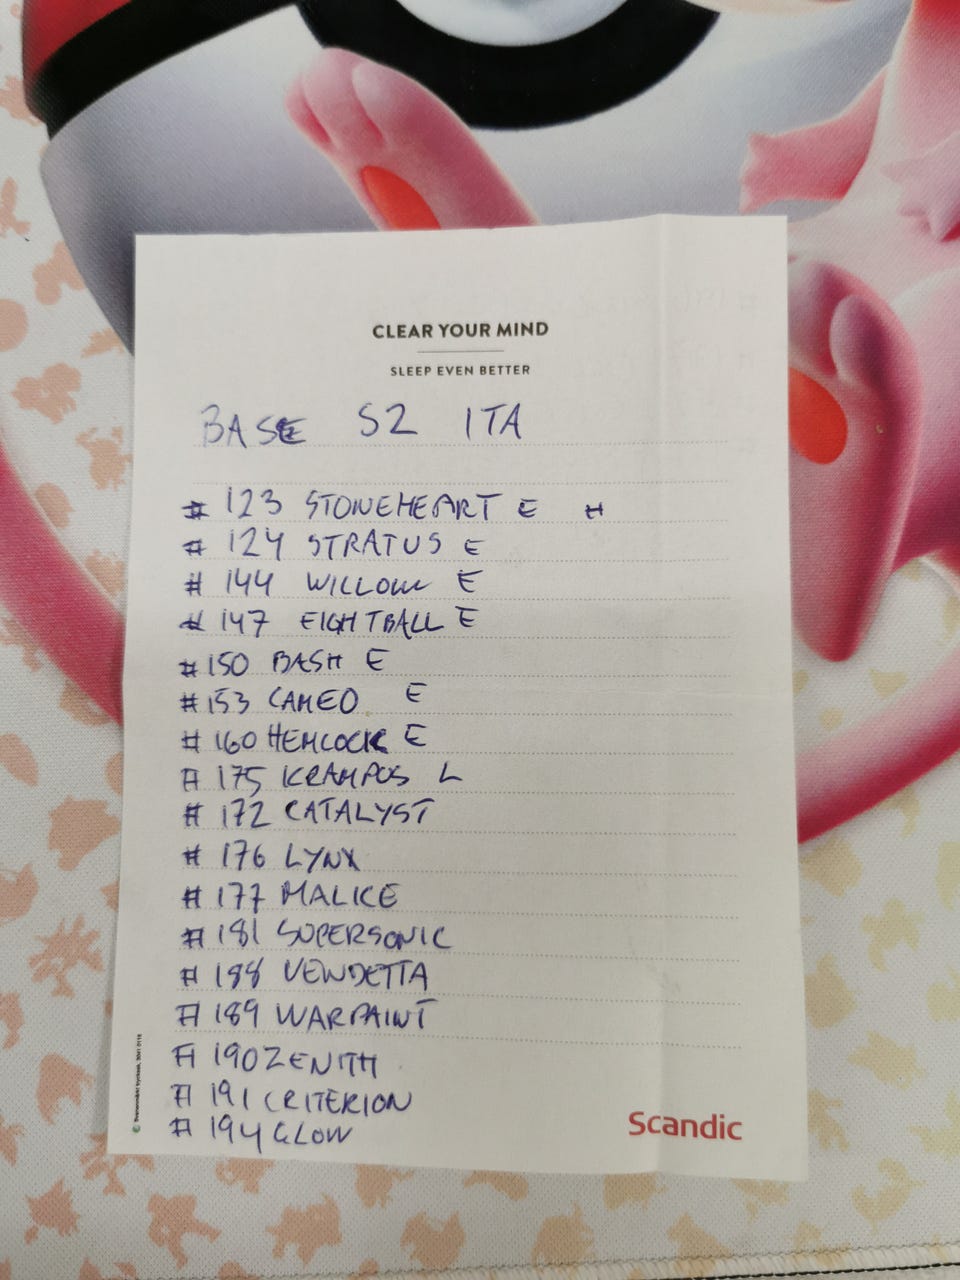 CLEAR YOUR MIND
SLEEP EVEN BETTER
BASE S2 ITA
# 123 STONEHEART E #
# 124 STRATUS E
# 144 WILLOW E
# 147 EIGHTBALL E
# 150 BASH E
# 153 CAMEO E
# 160 HEMLOCK E
# 175 KRAMPUS L
# 172 CATALYST
# 176 LYNX
# 177 MALICE
# 181 SUPERSONIC
# 188 VENDETTA
# 189 WARPAINT
# 190 ZENITH
# 191 CRITERION
# 194 GLOW
Scandic